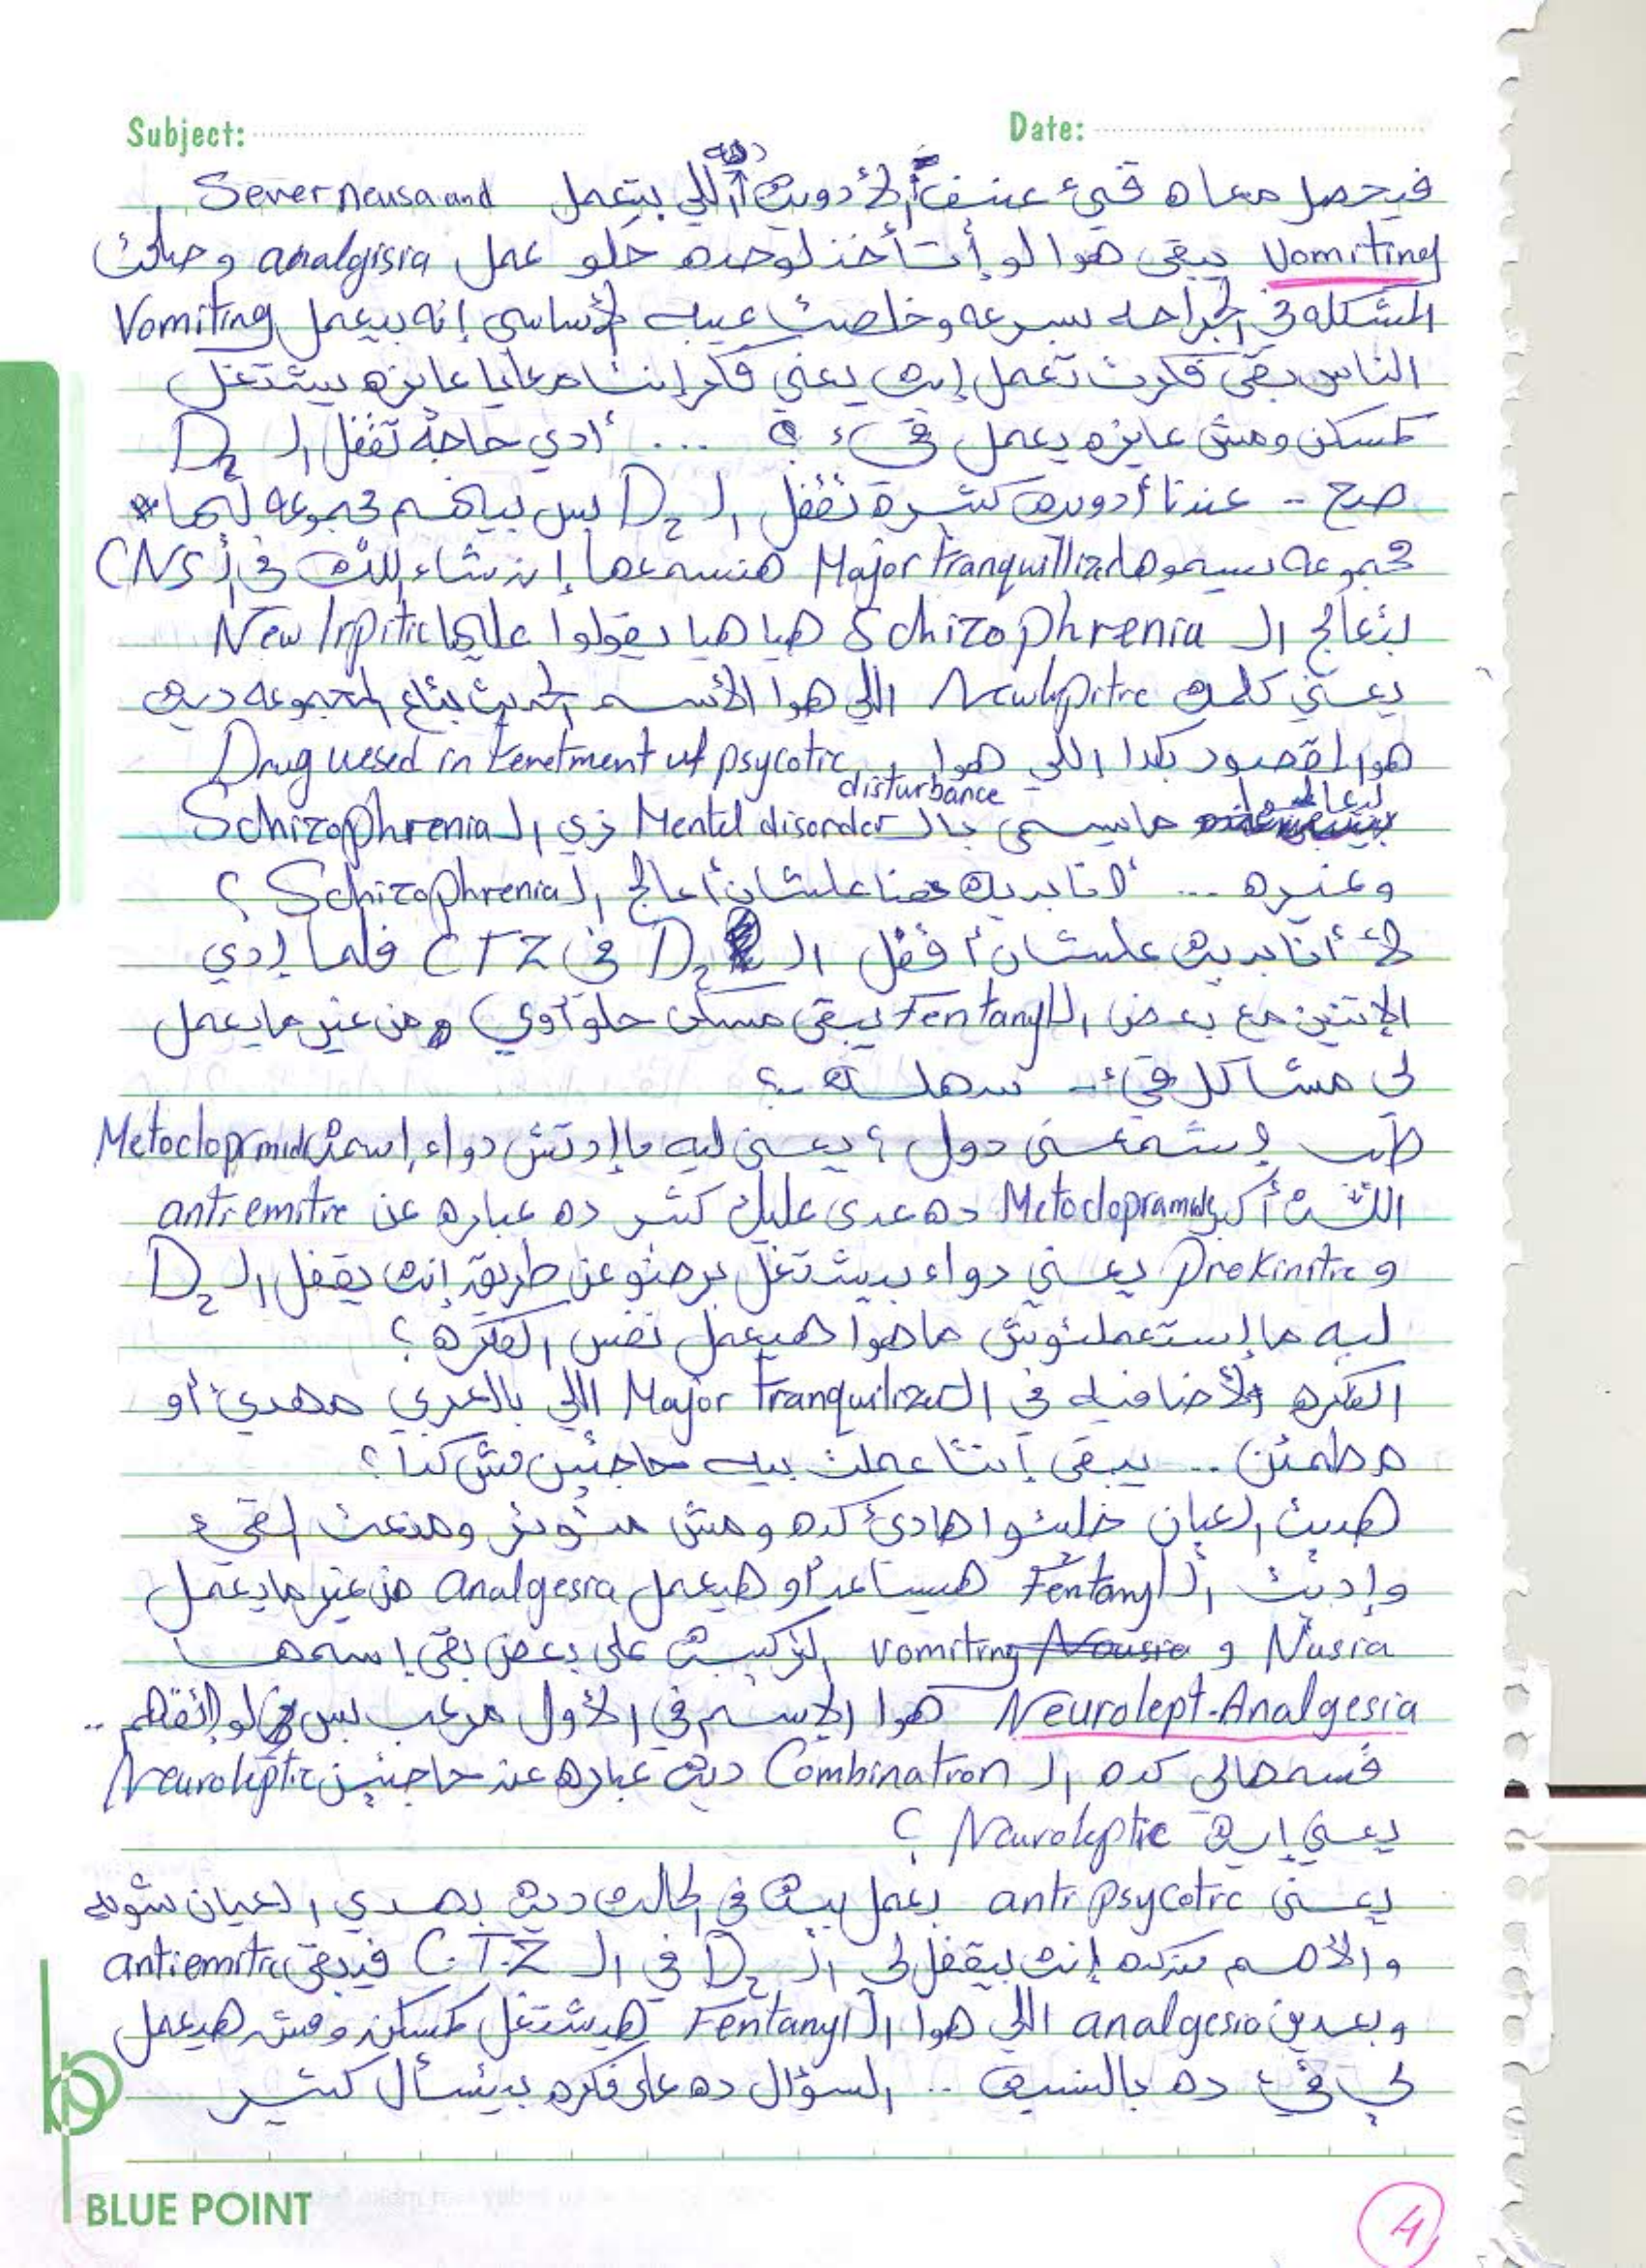 Subject: Date:
فيحصل معاه قيء عنيف الأدوية دي اللي بتعمل Sever neusa and
Vomiting يبقى هوا لو أتأخذ لوحده حلو عمل analgisia و
المشكله في الجراحه بسرعه وخلصت عيبه الأساسي إنه بيعمل Vomiting
الناس بقى فكرت تعمل إيه يعني فكر إنتا معايا عايزه بيشتغل
كمسكن ومش عايزه يعمل قيء ؟ ... أدي حاجة تقفل ال D2
صح - عندنا أدوية كتيرة تقفل ال D2 بس بياهم مجموعه لها *
مجموعه بسيموها Major tranquillized هنسمعها إن شاء الله في ال CNS
بتعالج ال Schizophrenia هيا هيا بيقولوا عليها New lrpitic
يعني كلمة Newlpitre اللي هوا الأسم الحديث بتاع المجموعه ديه
هوا المقصود بكدا اللي هوا Drug uesed in tenetment uf psycotic
disturbance
بيعالجوا ما يسمى بال Mentel disorder زي ال Schizophrenia
وغيره ... لأنا بديه هنا علشان أعالج ال Schizophrenia ؟
لأ أنا بديه علشان أقفل ال D2 في CTZ فلما إدي
الإتنين مع بعض ال Fentanyl يبقى مسكن حلو أوي ومن غير ما يعمل
لي مشاكل قيء - سهلة ..؟
طب إشمعنى دول ؟ يعني ليه ما إدتش دواء إسمه Metoclopromid
الله أكبر Metoclopramide ده عدى عليك كتير ده عباره عن anti emitre
و Prokinitic يعني دواء بيشتغل برضو عن طريق إنه يقفل ال D2
ليه ما إستعملتوش ما هوا هيعمل نفس الفكره ؟
الفكره الأضافيه في ال Major tranquilized اللي بالعربي مهدئ أو
مطمئن .. يبقى إنتا عملت بيه حاجتين مش كدا ؟
هديت العيان خليتوا هادئ كده ومش متوتر ومنعت القيء
وإديت ال Fentanyl هيساعد أو هيعمل analgesia من غير ما يعمل
Nusia و Nousia vomiting التركيبة على بعض بقى إسمها
Neurolept-Analgesia هوا الإسم في الأول مرعب بس لو اتفهم ..
قسمهالي كده ال Combination ديه عباره عن حاجتين Neuroleptic
يعني إيه Neuroleptic ؟
يعني anti psycotic بعمل بيه في الحالة ديه بهدي العيان شويه
والأهم من كده إنه بيقفل لي ال D2 في ال C.T.Z فيبقى antiemitic
وبعدين analgesia اللي هوا ال Fentanyl هيشتغل كمسكن ومش هيعمل
لي قيء ده بالنسبة .. السؤال ده على فكره بيتسأل كتير
BLUE POINT
4